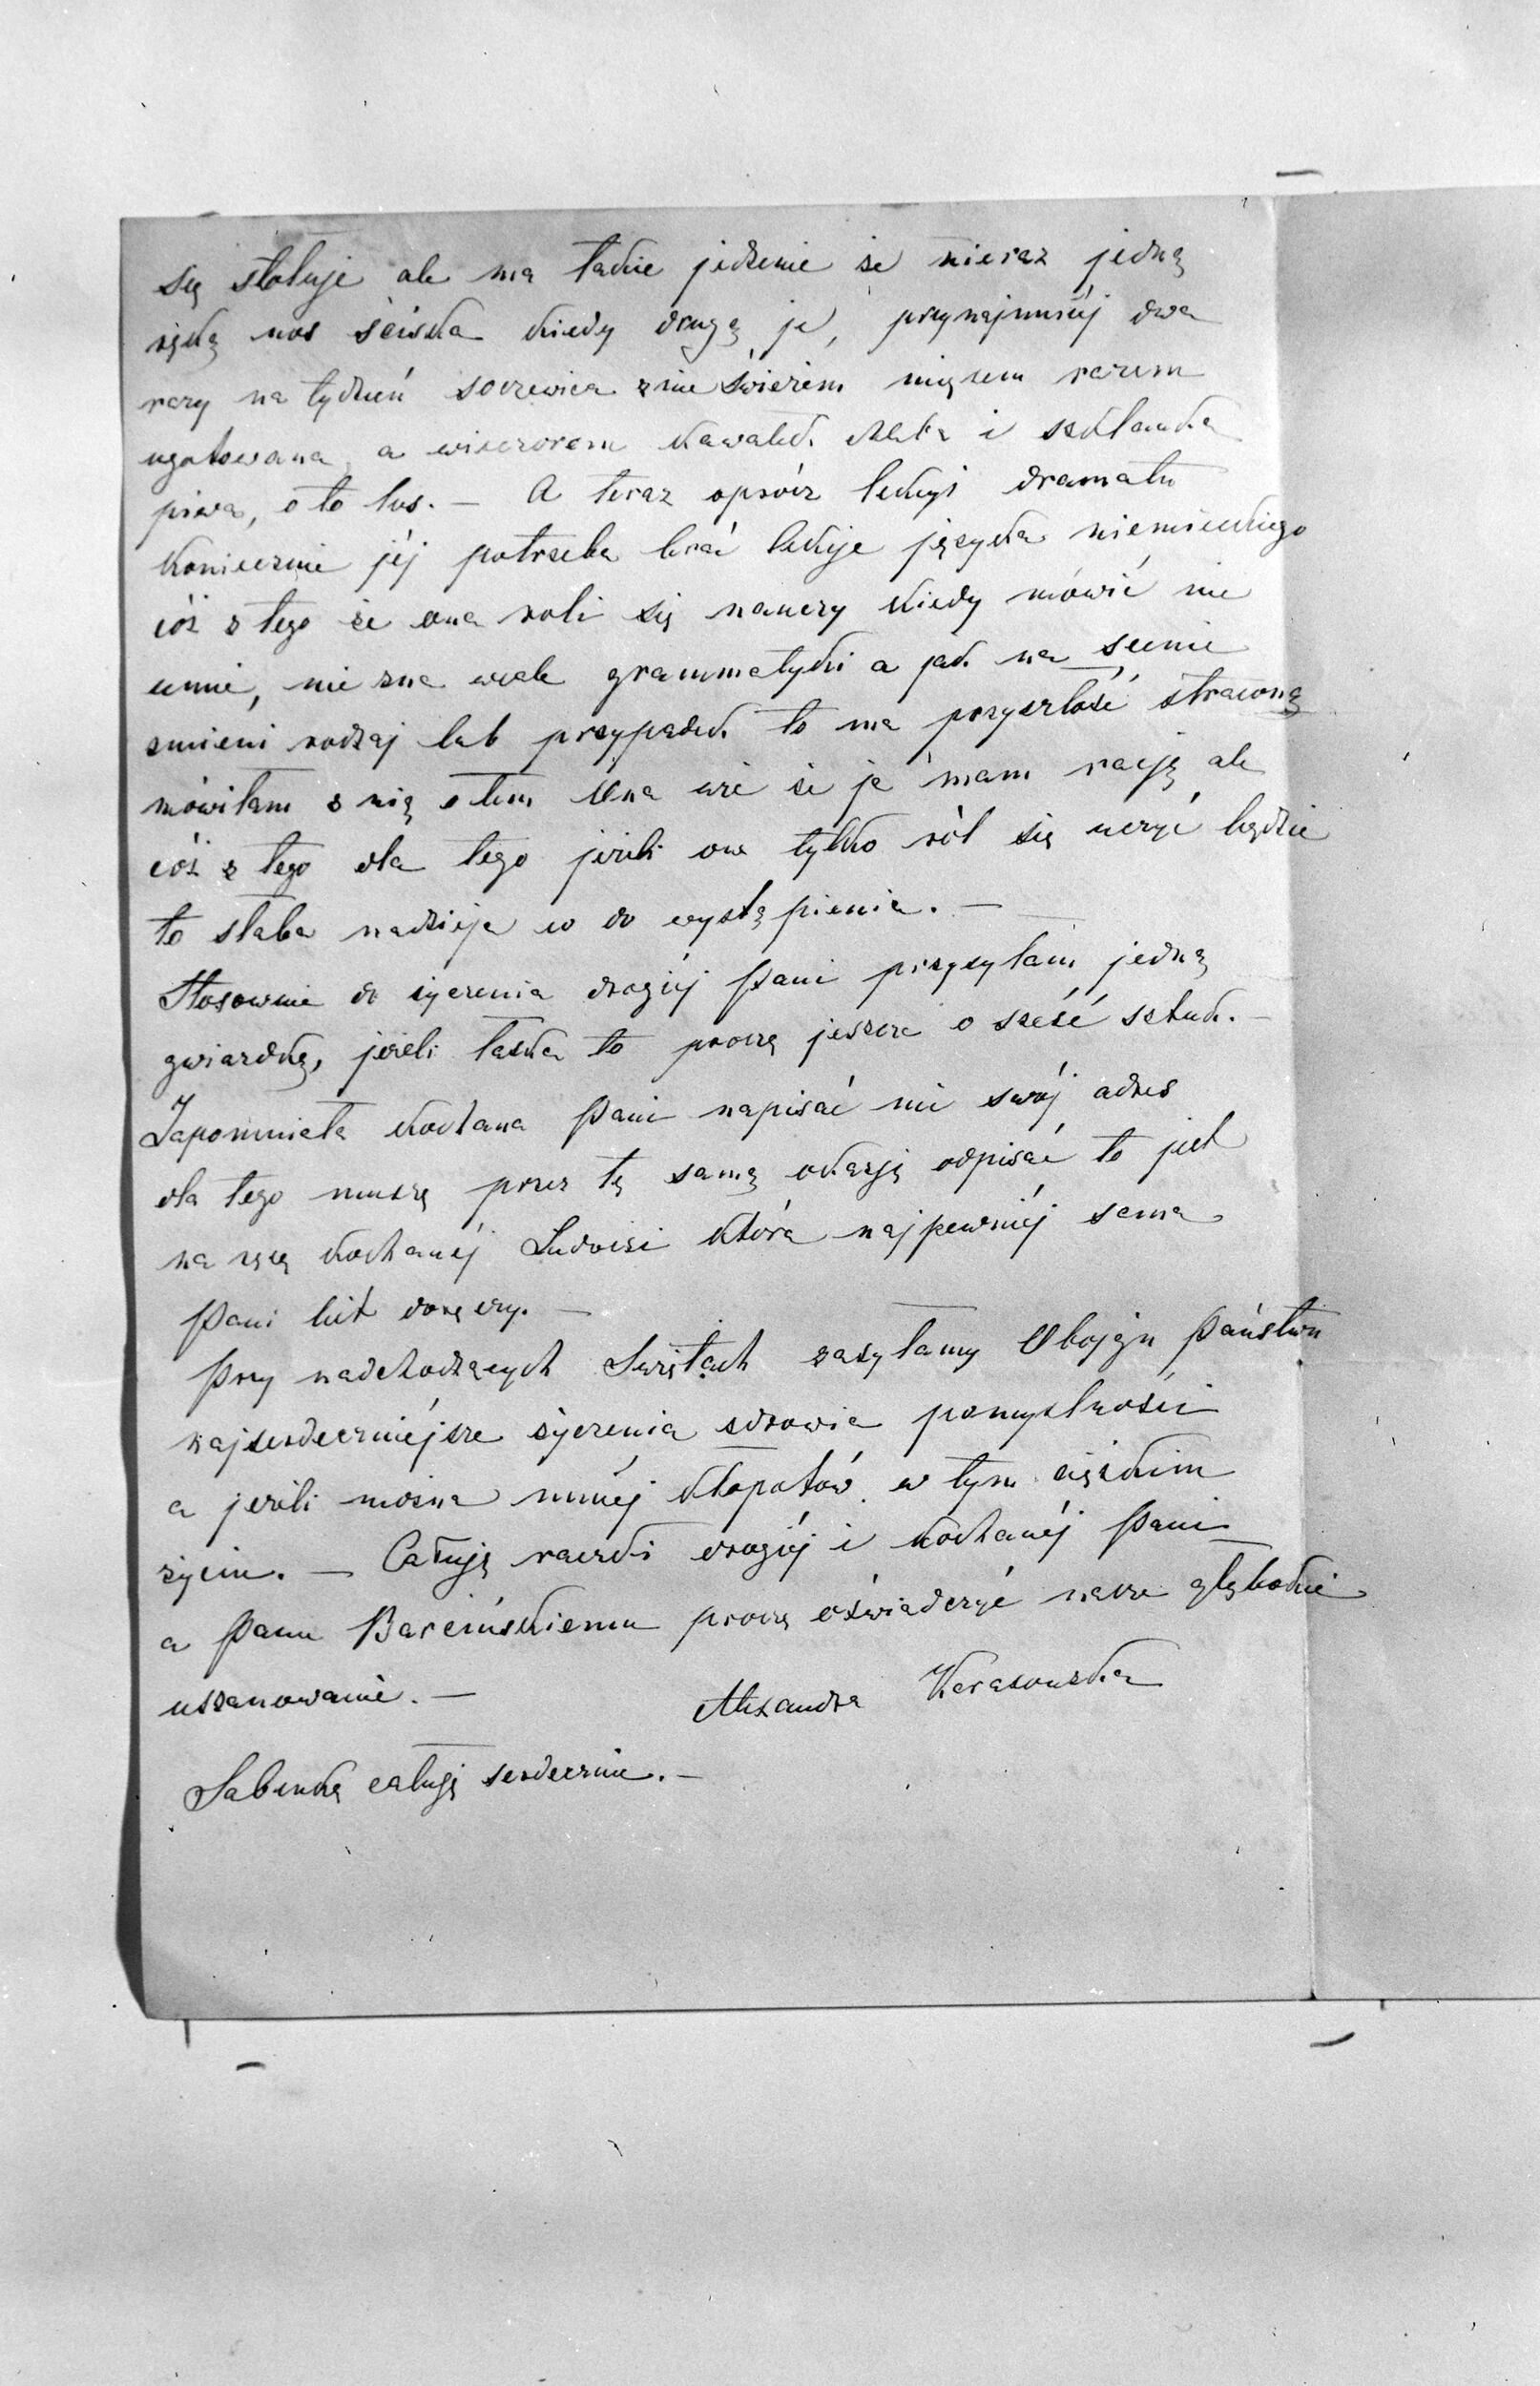 się stołuje ale ma takie jedzenie że nieraz jedną
ręką nos ściska kiedy drugą je, przynajmniéj dwa
razy na tydzień soczewica z nie świeżem mięsem razem
ugotowana, a wieczorem kawałek chleba i szklanka
piwa, o to los. — A teraz oprócz lekcyi dramatu
koniecznie jéj potrzeba brać lekcje języka niemieckiego
cóż z tego że ona roli się nauczy kiedy mówić nie
umie, nie zna wcale grammatyki a jak na scenie
zmieni rodzaj lub przypadek to ma przyszłość straconą
mówiłam z nią o tem Ona wie że ja mam racją ale
cóż z tego dla tego jeżeli ona tylko ról się uczyć będzie
to słaba nadzieja co do wystąpienia. —
Stosownie do życzenia drogiéj Pani przysyłam jedną
gwiazdkę, jeżeli łaska to proszę jeszcze o sześć sztuk. —
Zapomniała kochana Pani napisać mi swój adres
dla tego muszę przez tę samą okazją odpisać to jest
na ręce kochanéj Ludwisi która najpewniéj sama
Pani list doręczy. —
Przy nadchodzących Swiętach zasyłamy Obojgu Państwu
najserdeczniéjsze życzenia zdrowia pomyślności
a jeżeli można mniéj kłopotów w tym ciężkim
życiu. — Całuję raczki drogiéj i kochanéj Pani
a Panu Barcińskiemu proszę oświadczyć nasze głębokie
uszanowanie. —
Alexandra Karasowska
Sabinkę całuję serdecznie. —